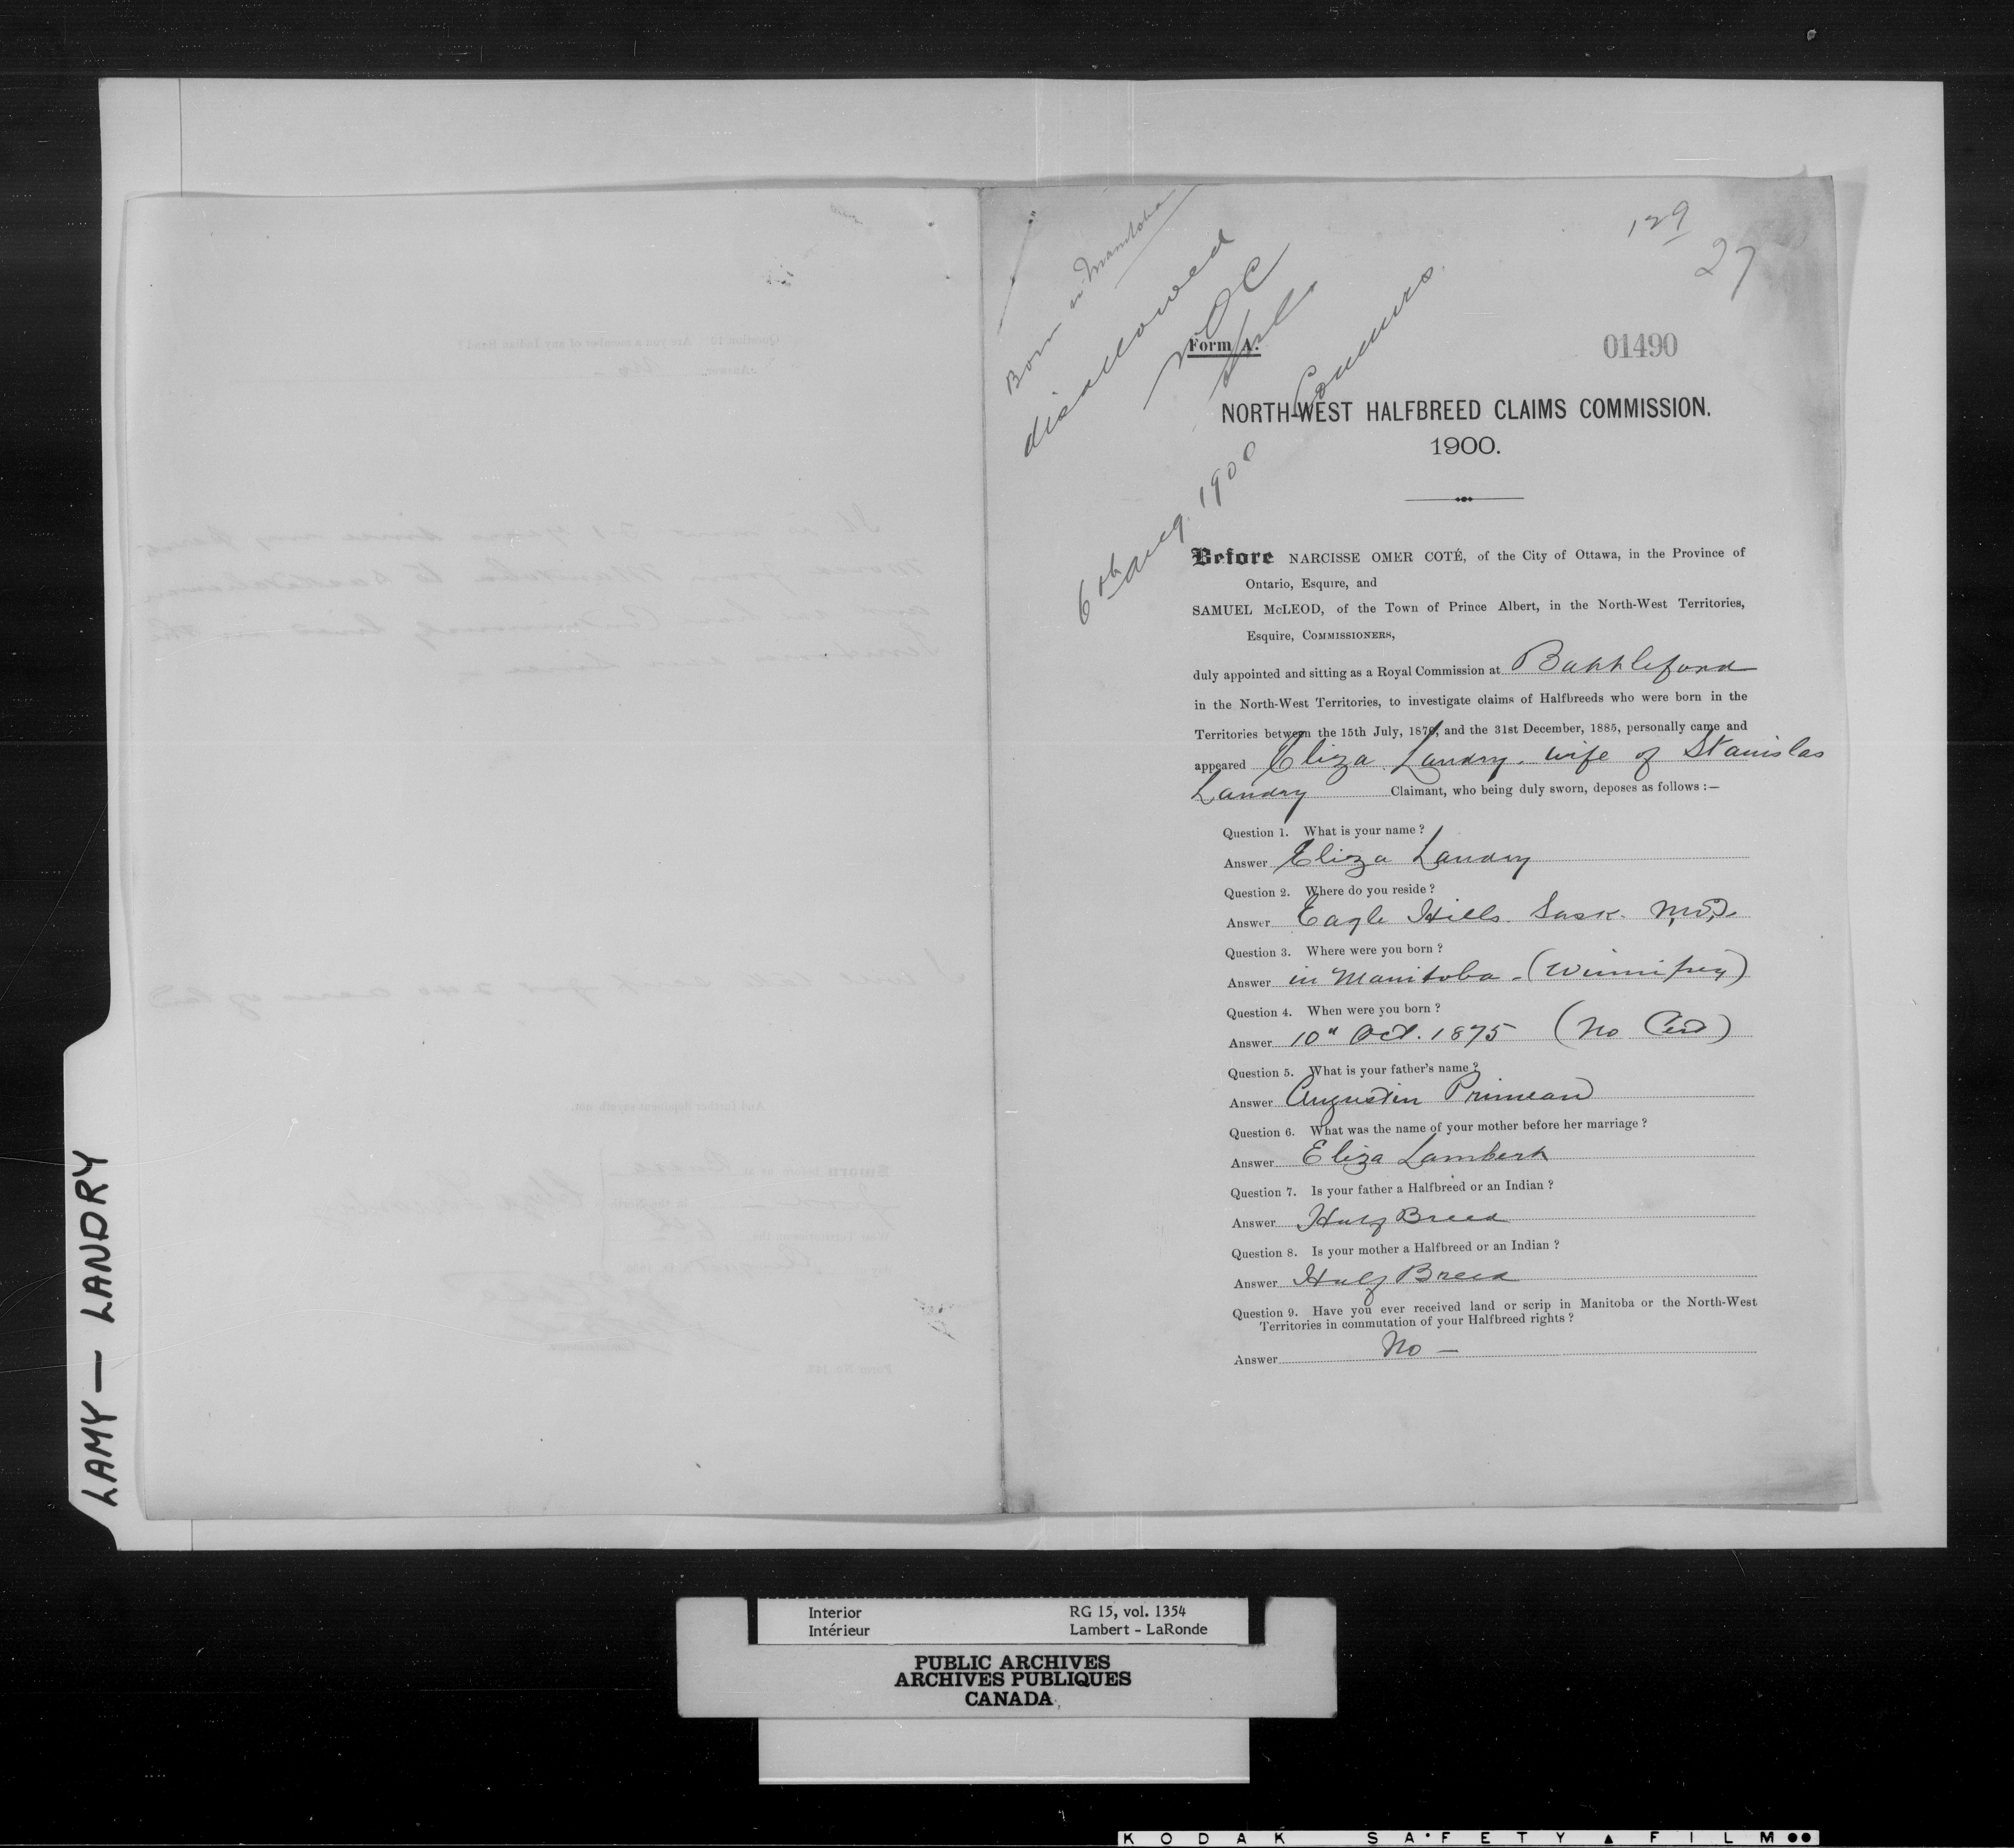 129
27
Born in Manitoba
disallowed
NOC
Commrs.
6th Aug. 1900
Form A.
01490
NORTH-WEST HALFBREED CLAIMS COMMISSION.
1900.
Before NARCISSE OMER COTÉ, of the City of Ottawa, in the Province of
Ontario, Esquire, and
SAMUEL McLEOD, of the Town of Prince Albert, in the North-West Territories,
Esquire, COMMISSIONERS,
duly appointed and sitting as a Royal Commission at Battleford
in the North-West Territories, to investigate claims of Halfbreeds who were born in the
Territories between the 15th July, 1870, and the 31st December, 1885, personally came and
appeared Eliza Landry. wife of Stanislas
Landry Claimant, who being duly sworn, deposes as follows :—
Question 1. What is your name ?
Answer Eliza Landry
Question 2. Where do you reside ?
Answer Eagle Hills. Sask. N.W.T.
Question 3. Where were you born ?
Answer in Manitoba - (Winnipeg)
Question 4. When were you born ?
Answer 10" Oct. 1875 (No Cert)
Question 5. What is your father's name ?
Answer Augustin Primeau
Question 6. What was the name of your mother before her marriage ?
Answer Eliza Lambert
Question 7. Is your father a Halfbreed or an Indian ?
Answer Half Breed
Question 8. Is your mother a Halfbreed or an Indian ?
Answer Half Breed
Question 9. Have you ever received land or scrip in Manitoba or the North-West
Territories in commutation of your Halfbreed rights ?
Answer No —
LAMY — LANDRY
Interior RG 15, vol. 1354
Intérieur Lambert - LaRonde
PUBLIC ARCHIVES
ARCHIVES PUBLIQUES
CANADA
KODAK SAFETY FILM